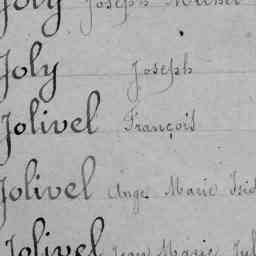 Joly Joseph Michel
Joly Joseph
Jolivel François
Jolivel Ange Marie Isid
Jolivel Jean Marie Jul